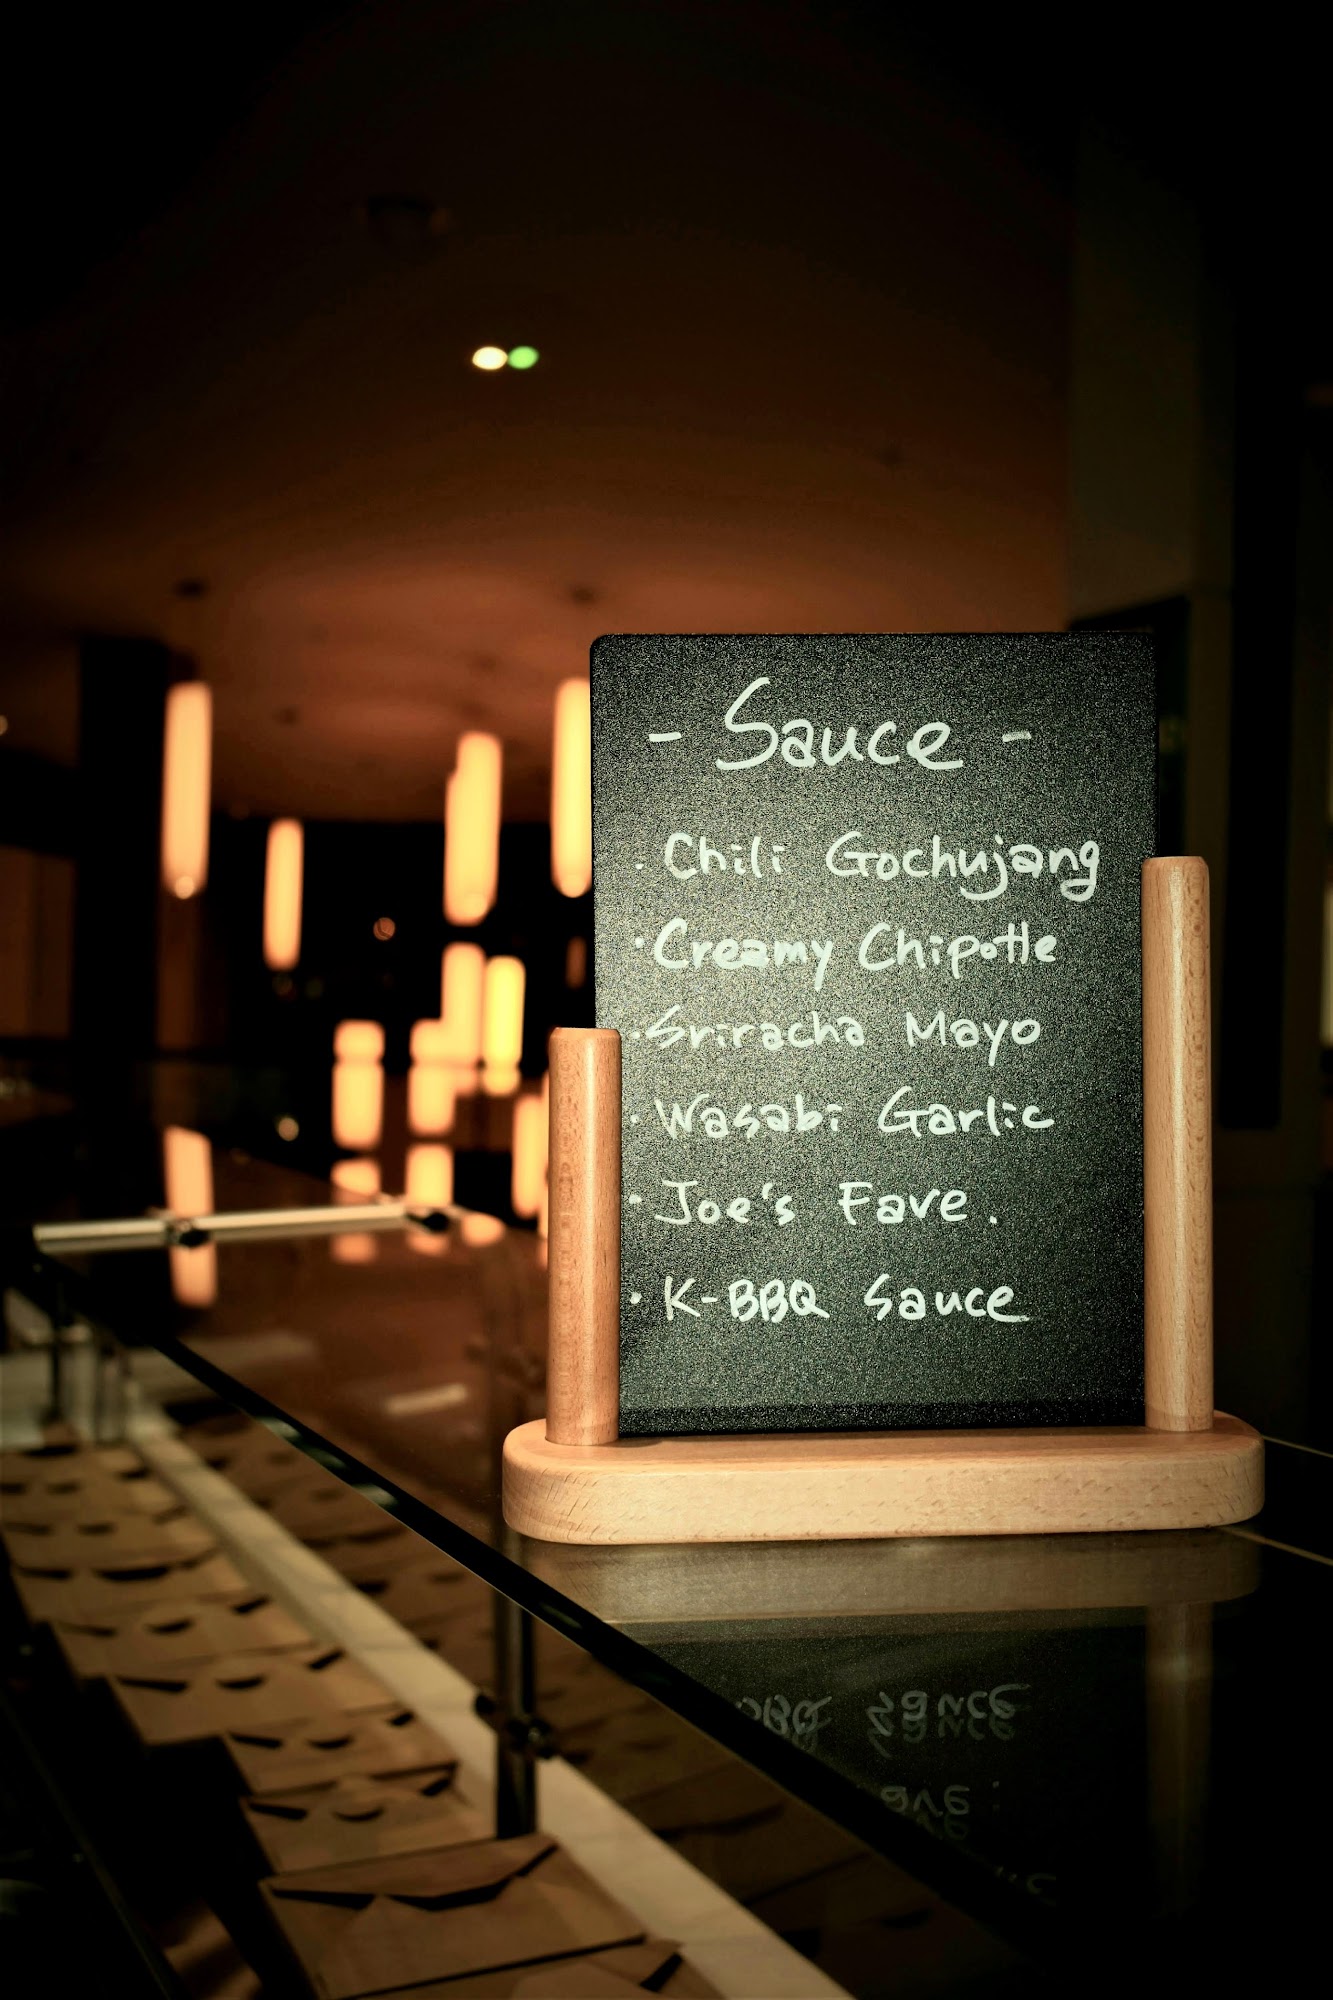 - Sauce -
· Chili Gochujang
· Creamy Chipotle
· Sriracha Mayo
· Wasabi Garlic
· Joe's Fave.
· K-BBQ Sauce